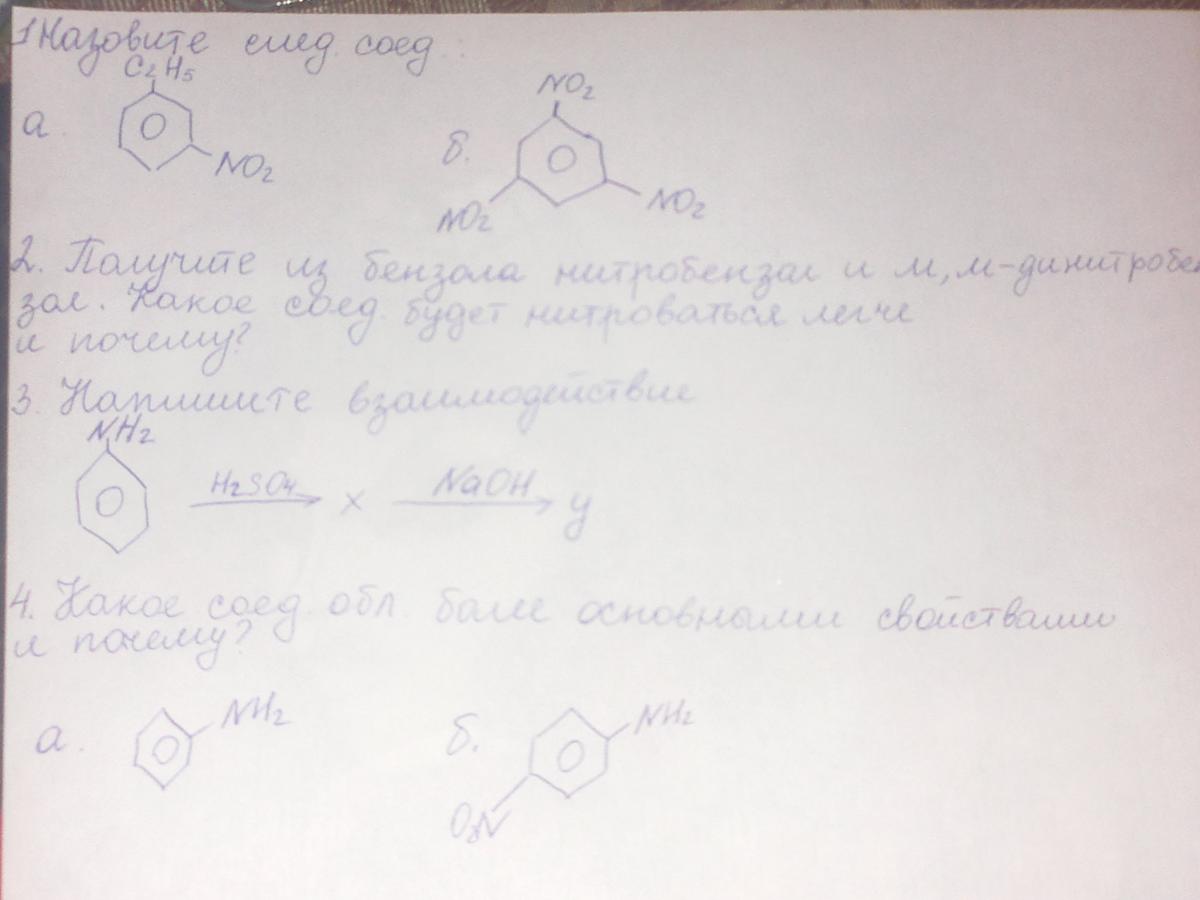 1 Назовите след. соед:
C2H5
а.
NO2
б.
NO2
NO2
NO2
2. Получите из бензола нитробензол и м,м-динитробен
зол. Какое соед. будет нитроваться легче
и почему?
3. Напишите взаимодействие
NH2
H2SO4
x
NaOH
y
4. Какое соед. обл. более основными свойствами
и почему?
а.
NH2
б.
NH2
O2N